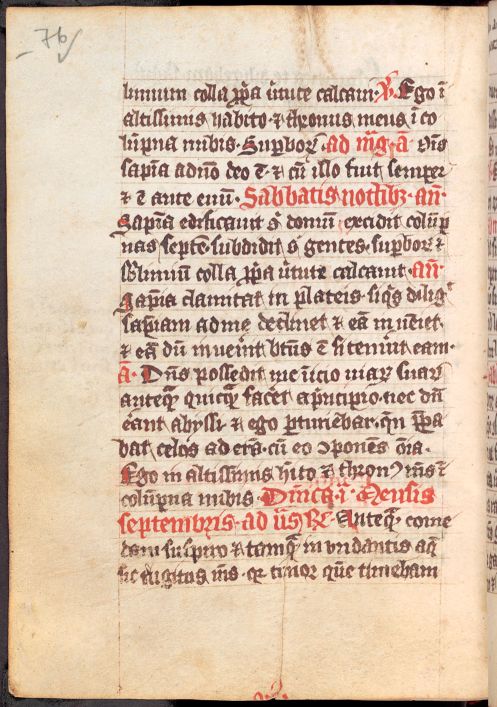 76
blimium colla ꝓpͥa ūtute calcaui · ꝟ. Ego ī
altissimis habito · ⁊ thronus meus ī co
lūpna nubis · Supborꝝ · ad mͣg · a Oīs
sapīa a dn̄o deo ē · ⁊ cū illo fuit semper
⁊ ē ante euū · Sabbatis noctibꝫ · an̄ ·
Sapīa edificauit sͥ domū excidit colūp
nas septē subdidit sͥ gentes · supborꝝ ⁊
sblimiū colla ꝓpͥa ūtute calcauit · an̄ ·
Sapīa clamitat in plateis · siqͥs diligͥt
sapīam ad me declinet ⁊ eā inueīet ·
⁊ eā dū inueīit btūs ē si tenūit eam ·
a · Dn̄s possedit me īicio uiaꝝ suaꝝ
anteqͣꝫ quicqͣꝫ facet a pͥncipio · nec dū
ēant abyssi ⁊ ego ꝑturiebar · qn̄ ꝓpa
bat celos aderā · cū eo ↄponēs oīa ·
Ego in altissimis hīto ⁊ thronꝯ mͥs ī
colūpna nubis · Dn̄icͣ · i · Mensis
septembris · ad ūs Rͫ · Anteqͣꝫ come
dam suspiro ⁊ tamqͣꝫ inundantis aq̄
sic rugitus mͥs · qꝛ timor quē timebam